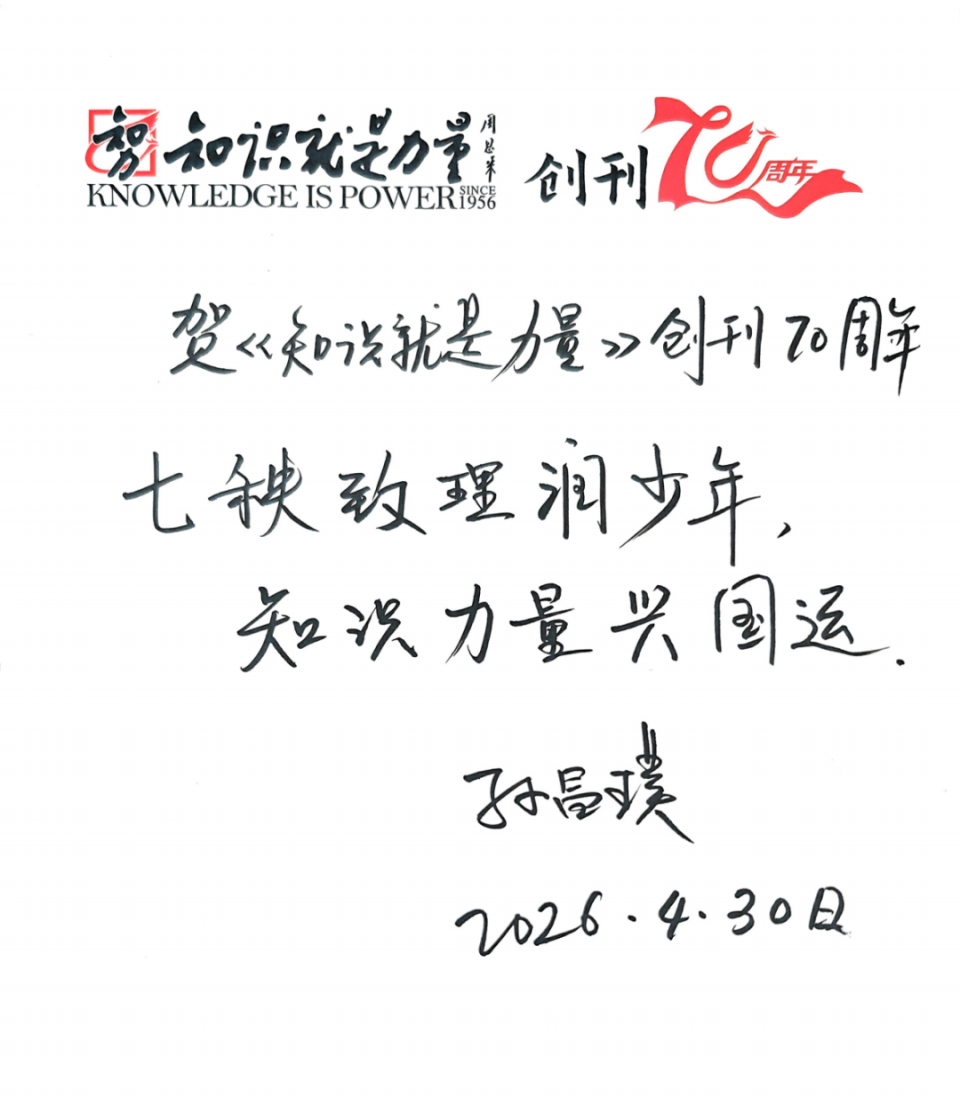 知识就是力量 周恩来
KNOWLEDGE IS POWER SINCE 1956
创刊70周年
贺《知识就是力量》创刊70周年
七秩致理润少年,
知识力量兴国运.
孙昌璞
2026.4.30日